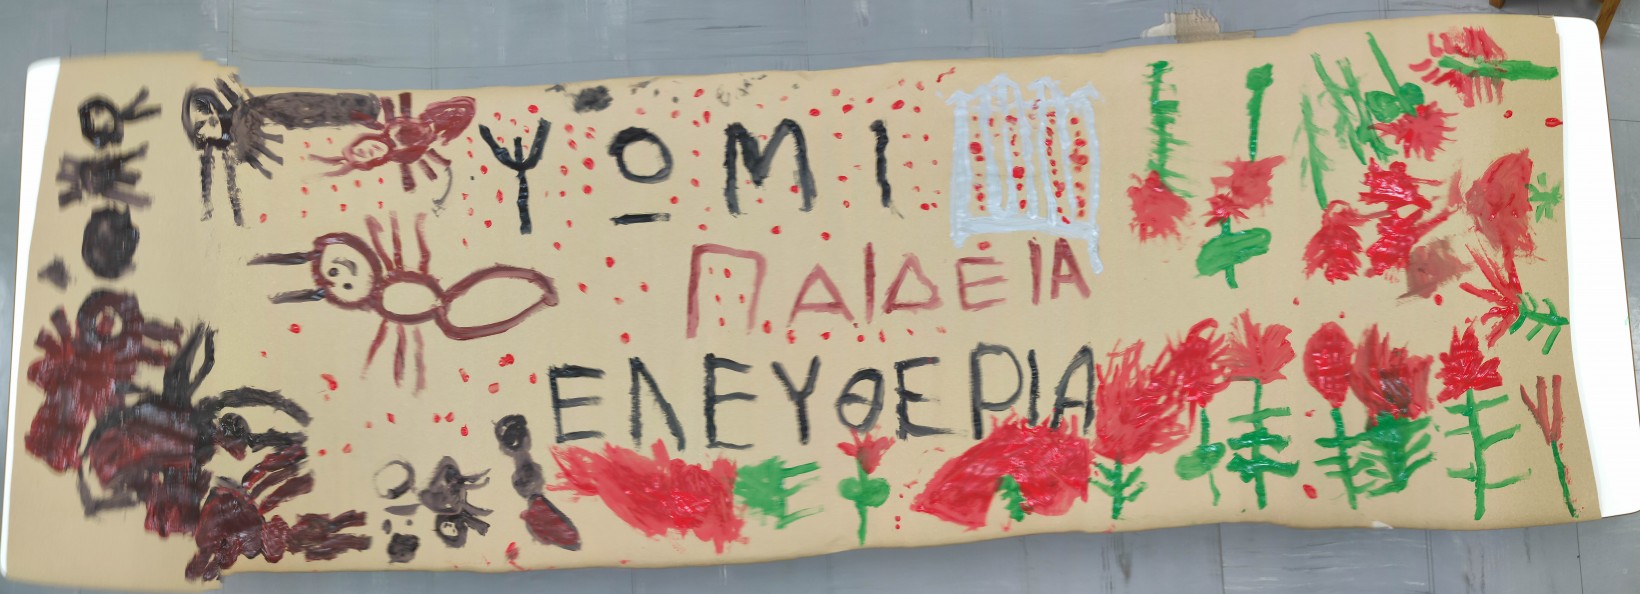 ΨΟΜΙ
ΠΑΙΔΕΙΑ
ΕΛΕΥΘΕΡΙΑ